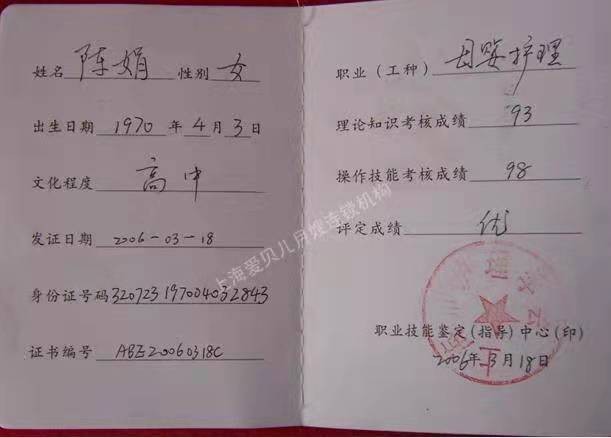 姓名 陈娟 性别 女
出生日期 1970 年 4 月 3 日
文化程度 高中
发证日期 2006-03-18
身份证号码 320723197004032843
证书编号 ABE20060318C
职业（工种） 母婴护理
理论知识考核成绩 93
操作技能考核成绩 98
评定成绩 优
职业技能鉴定(指导)中心(印)
2006年3月18日
上海爱贝儿月嫂连锁机构